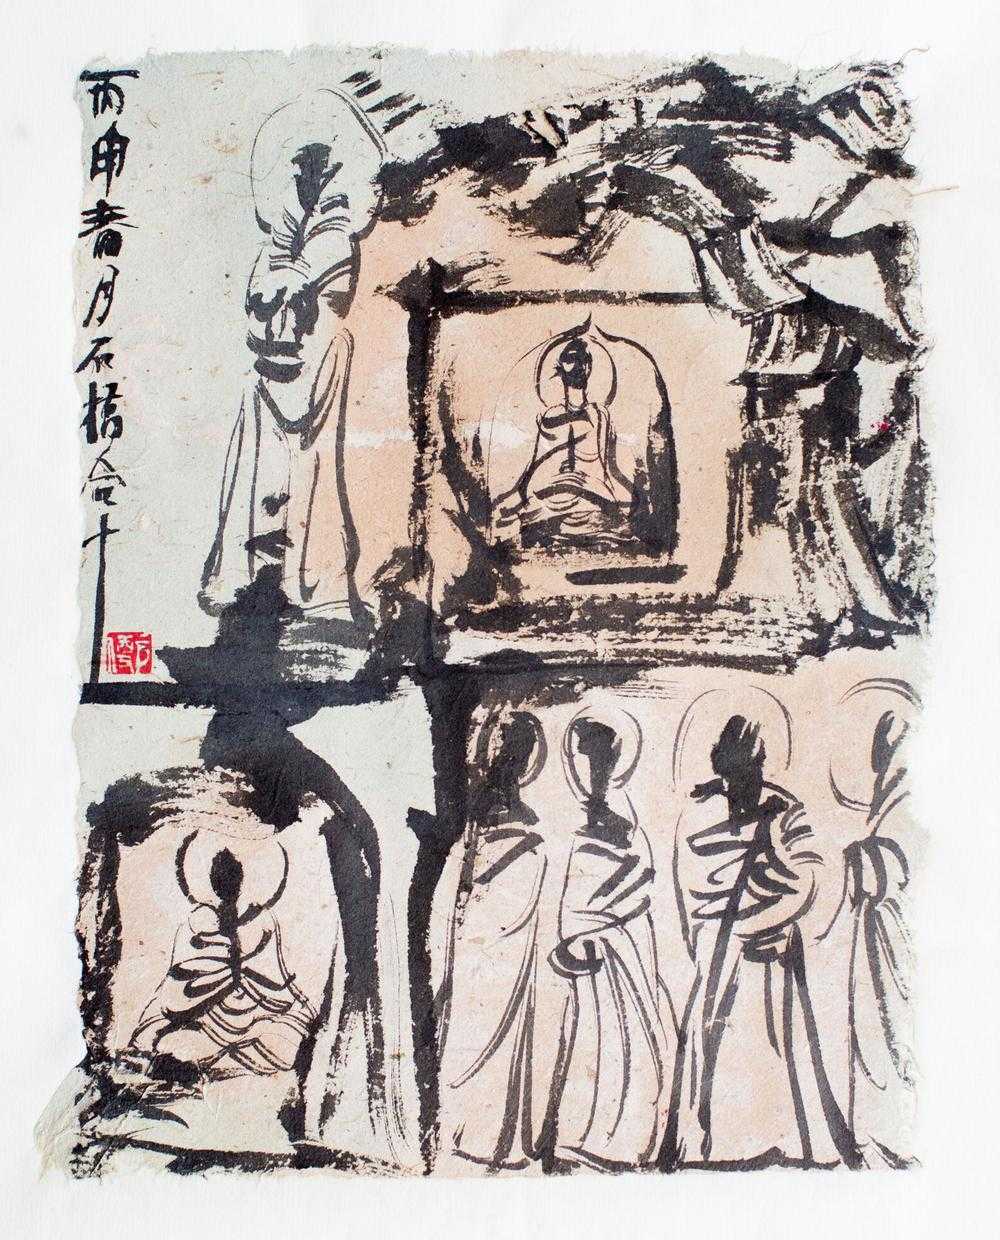 丙申春月石橋合十